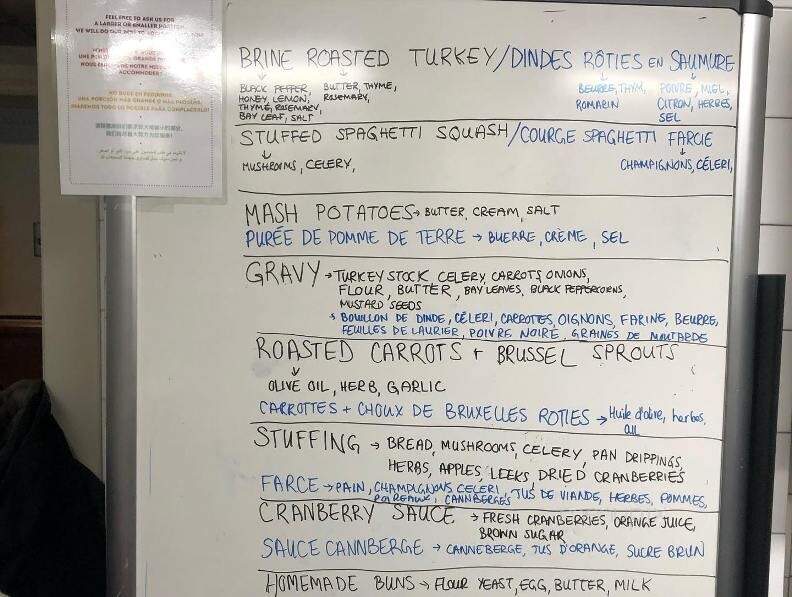 FEEL FREE TO ASK US FOR
A LARGER OR SMALLER PORTION.
WE WILL DO OUR BEST TO
NO DUDE EN PEDIRNOS
UNA PORCIÓN MÁS GRANDE O MÁS PEQUEÑA.
HAREMOS TODO LO POSIBLE PARA COMPLACERLO!
BRINE ROASTED TURKEY/DINDES RÔTIES EN SAUMURE
BLACK PEPPER, BUTTER, THYME, BEURRE, THYM, POIVRE, MIEL,
HONEY, LEMON, ROSEMARY, ROMARIN CITRON, HERBES,
THYME, ROSEMARY, SEL
BAY LEAF, SALT
STUFFED SPAGHETTI SQUASH/COURGE SPAGHETTI FARCIE
MUSHROOMS, CELERY, CHAMPIGNONS, CÉLERI,
MASH POTATOES → BUTTER, CREAM, SALT
PURÉE DE POMME DE TERRE → BUERRE, CRÈME, SEL
GRAVY → TURKEY STOCK CELERY, CARROTS, ONIONS,
FLOUR, BUTTER, BAY LEAVES, BLACK PEPPERCORNS,
MUSTARD SEEDS
→ BOUILLON DE DINDE, CÉLERI, CARROTES, OIGNONS, FARINE, BEURRE,
FEUILLES DE LAURIER, POIVRE NOIRE, GRAINES DE MOUTARDE
ROASTED CARROTS + BRUSSEL SPROUTS
OLIVE OIL, HERB, GARLIC
CARROTTES + CHOUX DE BRUXELLES ROTIES → Huile d'olive, herbes,
ail
STUFFING → BREAD, MUSHROOMS, CELERY, PAN DRIPPINGS,
HERBS, APPLES, LEEKS, DRIED CRANBERRIES
FARCE → PAIN, CHAMPIGNONS CELERI, JUS DE VIANDE, HERBES, POMMES,
POIREAUX, CANNBERGES
CRANBERRY SAUCE → FRESH CRANBERRIES, ORANGE JUICE,
BROWN SUGAR
SAUCE CANNBERGE → CANNEBERGE, JUS D'ORANGE, SUCRE BRUN
HOMEMADE BUNS → FLOUR YEAST, EGG, BUTTER, MILK